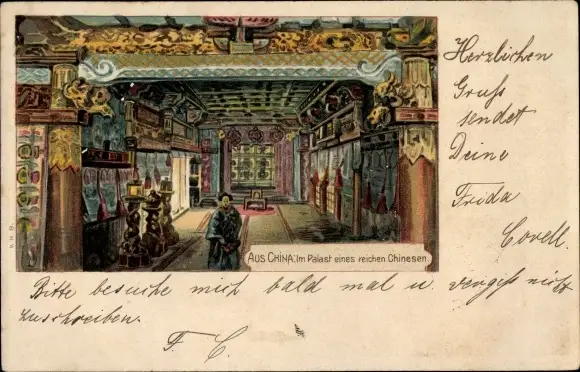 Herzlichen
Gruß
sendet
Deine
Frida
Covell.
AUS CHINA: Im Palast eines reichen Chinesen.
Bitte besuche mich bald mal u. vergiß nicht
zuschreiben.
F. C.